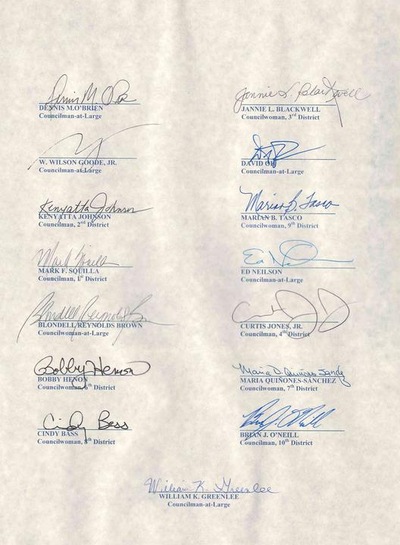 Dennis M. O'B
DENNIS M.O'BRIEN
Councilman-at-Large
Jannie L. Blackwell
JANNIE L. BLACKWELL
Councilwoman, 3rd District
W. WILSON GOODE, JR.
Councilman-at-Large
DAVID OH
Councilman-at-Large
Kenyatta Johnson
KENYATTA JOHNSON
Councilman, 2nd District
Marian B. Tasco
MARIAN B. TASCO
Councilwoman, 9th District
Mark Squilla
MARK F. SQUILLA
Councilman, 1st District
Ed
ED NEILSON
Councilman-at-Large
Blondell Reynolds Brown
BLONDELL REYNOLDS BROWN
Councilwoman-at-Large
CURTIS JONES, JR.
Councilman, 4th District
Bobby Henon
BOBBY HENON
6th District
Maria D. Quiñones Sánchez
MARIA QUIÑONES-SÁNCHEZ
Councilwoman, 7th District
Cindy Bass
CINDY BASS
Councilwoman, 8th District
Brian J. O'Neill
BRIAN J. O'NEILL
Councilman, 10th District
William K. Greenlee
WILLIAM K. GREENLEE
Councilman-at-Large